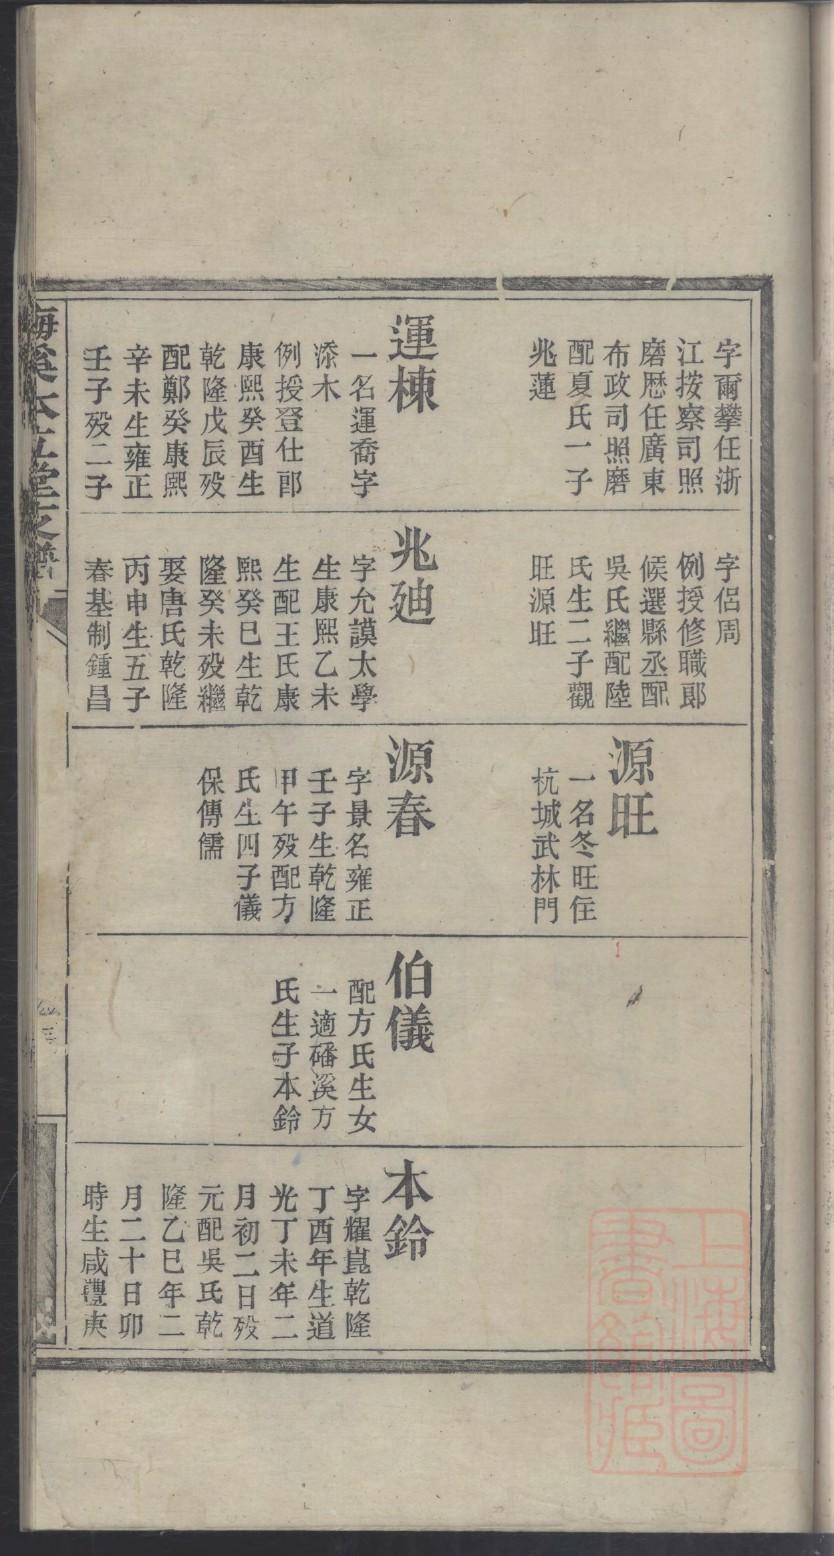 字爾攀任浙
江按察司照
磨歷任廣東
布政司照磨
配夏氏一子
兆蓮
運棟
一名運喬字
添木
例授登仕郎
康熙癸酉生
乾隆戊辰歿
配鄭癸康熙
辛未生雍正
壬子歿二子
字侶周
例授修職郎
候選縣丞配
吳氏繼配陸
氏生二子觀
旺源旺
兆廸
字允謨太學
生康熙乙未
生配王氏康
熙癸巳生乾
隆癸未歿繼
娶唐氏乾隆
丙申生五子
春基制鍾昌
源旺
一名冬旺住
杭城武林門
源春
字景名雍正
壬子生乾隆
甲午歿配方
氏生四子儀
保傳儒
伯儀
配方氏生女
一適磻溪方
氏生子本鈴
本鈴
字耀崑乾隆
丁酉年生道
光丁未年二
月初二日歿
元配吳氏乾
隆乙巳年二
月二十日卯
時生咸豐庚
上海圖
書館藏